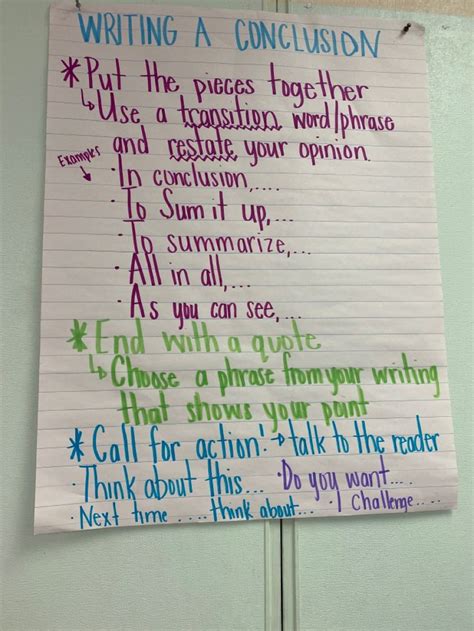 WRITING A CONCLUSION
*Put the pieces together
↳Use a transition word/phrase
and restate your opinion.
Examples
·In conclusion,....
·To Sum it up,...
·To summarize,...
·All in all,...
·As you can see,...
*End with a quote
↳Choose a phrase from your writing
that shows your point
*Call for action!→talk to the reader
·Think about this... ·Do you want....
·Next time .... think about... ·I Challenge.....